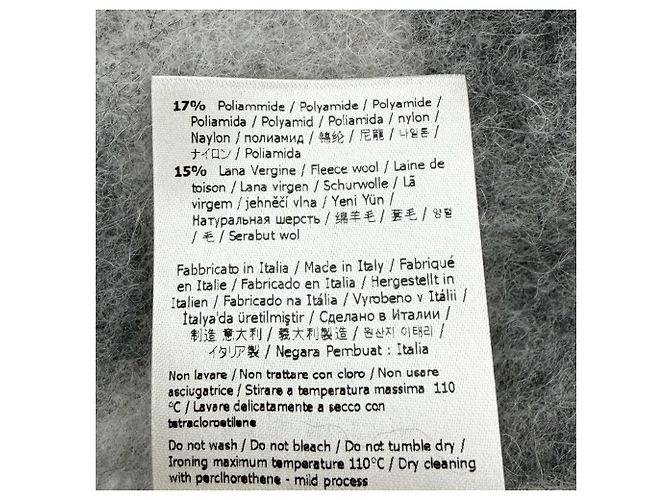 17% Poliammide / Polyamide / Polyamide /
Poliamida / Polyamid / Poliamida / nylon /
Naylon / полиамид / 锦纶 / 尼龍 / 나일론 /
ナイロン / Poliamida
15% Lana Vergine / Fleece wool / Laine de
toison / Lana virgen / Schurwolle / Lã
virgem / jehněčí vlna / Yeni Yün /
Натуральная шерсть / 绵羊毛 / 羊毛 / 양털
/ 毛 / Serabut wol
Fabbricato in Italia / Made in Italy / Fabriqué
en Italie / Fabricado en Italia / Hergestellt in
Italien / Fabricado na Itália / Vyrobeno v Itálii /
İtalya'da üretilmiştir / Сделано в Италии /
制造 意大利 / 義大利製造 / 원산지 이태리 /
イタリア製 / Negara Pembuat : Italia
Non lavare / Non trattare con cloro / Non usare
asciugatrice / Stirare a temperatura massima 110
°C / Lavare delicatamente a secco con
tetracloroetilene
Do not wash / Do not bleach / Do not tumble dry /
Ironing maximum temperature 110°C / Dry cleaning
with perclhorethene - mild process